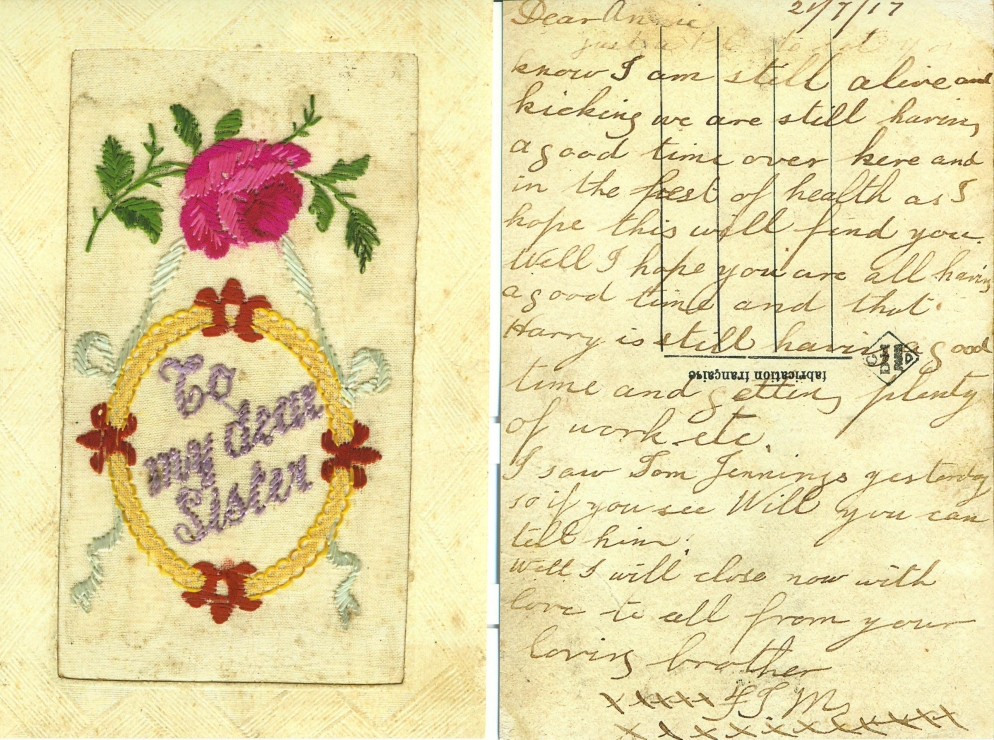 To
my dear
Sister
Dear Annie 21/7/17
just a P.C. to let you
know I am still alive and
kicking we are still having
a good time over here and
in the best of health as I
hope this will find you.
Well I hope you are all having
a good time and that
Harry is still having a good
fabrication française
time and getting plenty
of work etc.
I saw Tom Jennings yesterday
so if you see Will you can
tell him.
Well I will close now with
love to all from your
loving brother
xxxxx
xxxxxxxxxxxxx